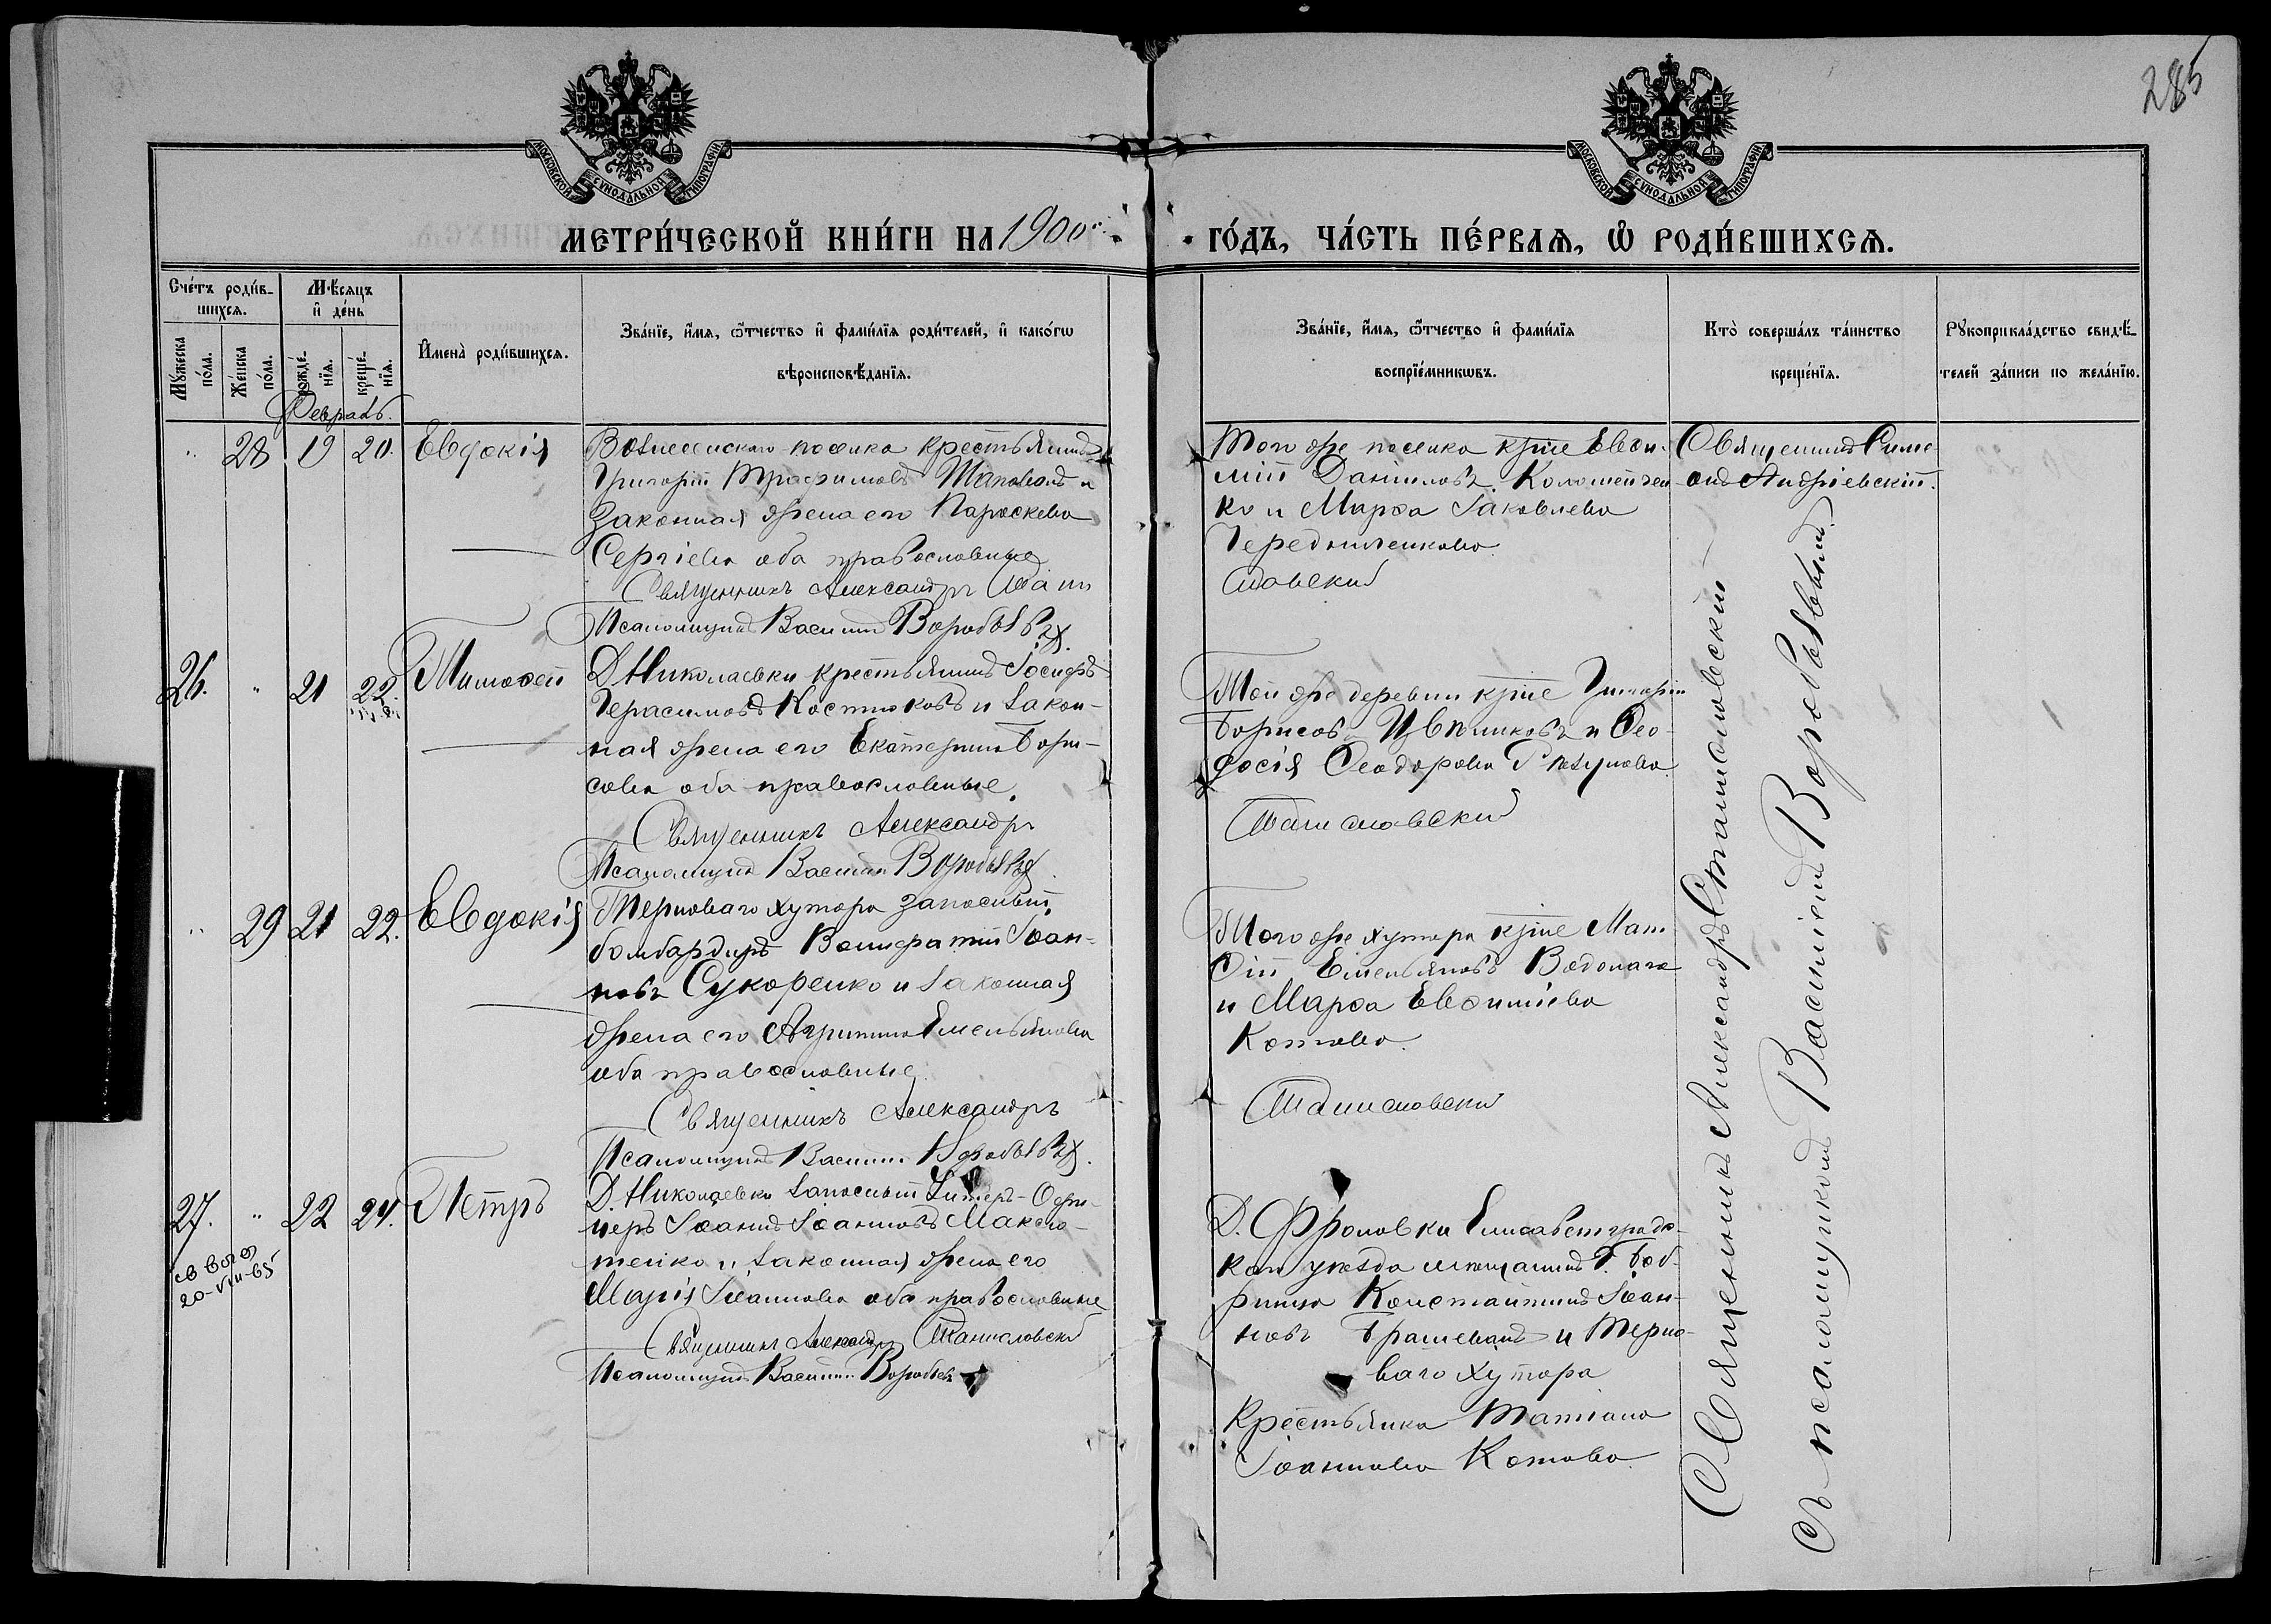 285
МОСКОВСКОЙ СѴНОДАЛЬНОЙ ТИПОГРАФІИ
МОСКОВСКОЙ СѴНОДАЛЬНОЙ ТИПОГРАФІИ
МЕТРИ́ЧЕСКОЙ КНИ́ГИ НА 1900
ГО́ДЪ, ЧА́СТЬ ПЕ́РВАѦ, Ѡ҆ РОДИ́ВШИХСѦ.
Сче́тъ роди́в-
шихсѧ.
Му́жеска
по́ла.
Же́нска
по́ла.
Мѣ́сяцъ
и҆ де́нь
рожде́-
нїѧ.
креще́-
нїѧ.
И҆мена̀ роди́вшихсѧ.
Зва́нїе, и҆́мѧ, ѻ҆́тчество и҆ фами́лїѧ роди́телей, и҆ како́гѡ
вѣроисповѣ́данїѧ.
Зва́нїе, и҆́мѧ, ѻ҆́тчество и҆ фами́лїѧ
воспрїе́мникѡвъ.
Кто̀ соверша́лъ та́инство
креще́нїѧ.
Рꙋкоприкла́дство свидѣ́-
телей за́писи по жела́нїю.
Февраль.
" 28 19 20. Евдокія
Вознесенскаго поселка крестьянинъ
Григорій Трофимовъ Шаповалъ и
законная жена его Параскева
Сергіева оба православные
Священникъ Александръ Стани
Псаломщикъ Василій Воробьевъ
Того же поселка кр-не Евѳи-
мій Даніиловъ Коломейчен-
ко и Марѳа Іаковлева
Чередниченкова
славский
Священникъ Симе-
онъ Андріевскій.
26. " 21 22. Тимоѳей
Д. Николаевки крестьянинъ Іосифъ
Герасимовъ Костюковъ и закон-
ная жена его Екатерина Бори-
сова оба православные.
Священникъ Александръ
Псаломщикъ Василій Воробьевъ
Той же деревни кр-не Григорій
Борисовъ и Ѳео-
досія Ѳеодорова
Станиславский
" 29 21 22. Евдокія
Терноваго хутора запасный
бомбардиръ Вонифатій Іоан-
новъ Сукоренко и законная
жена его Агриппина Емельянова
оба православные
Священникъ Александръ
Псаломщикъ Василій Воробьевъ
Того же хутора кр-не Мат-
ѳій Емельяновъ Водолага
и Марѳа Евѳиміева
Котова.
Станиславский
27. " 22 24. Петръ
20-VIII-65
Д. Николаевки запасный Унтеръ-Офи-
церъ Іоаннъ Іоанновъ Максю-
тенко и законная жена его
Марія Іоаннова оба православные
Священникъ Александръ Станиславский
Псаломщикъ Василій Воробьевъ
Д. Фроловки Елисаветград-
каго уезда мещанинъ Г. Боб-
ринца Константинъ Іоан-
новъ и Терно-
ваго хутора
крестьянка Татіана
Іоаннова Котова
Священникъ Александръ Станиславскій
Съ псаломщикомъ Василіемъ Воробьевымъ